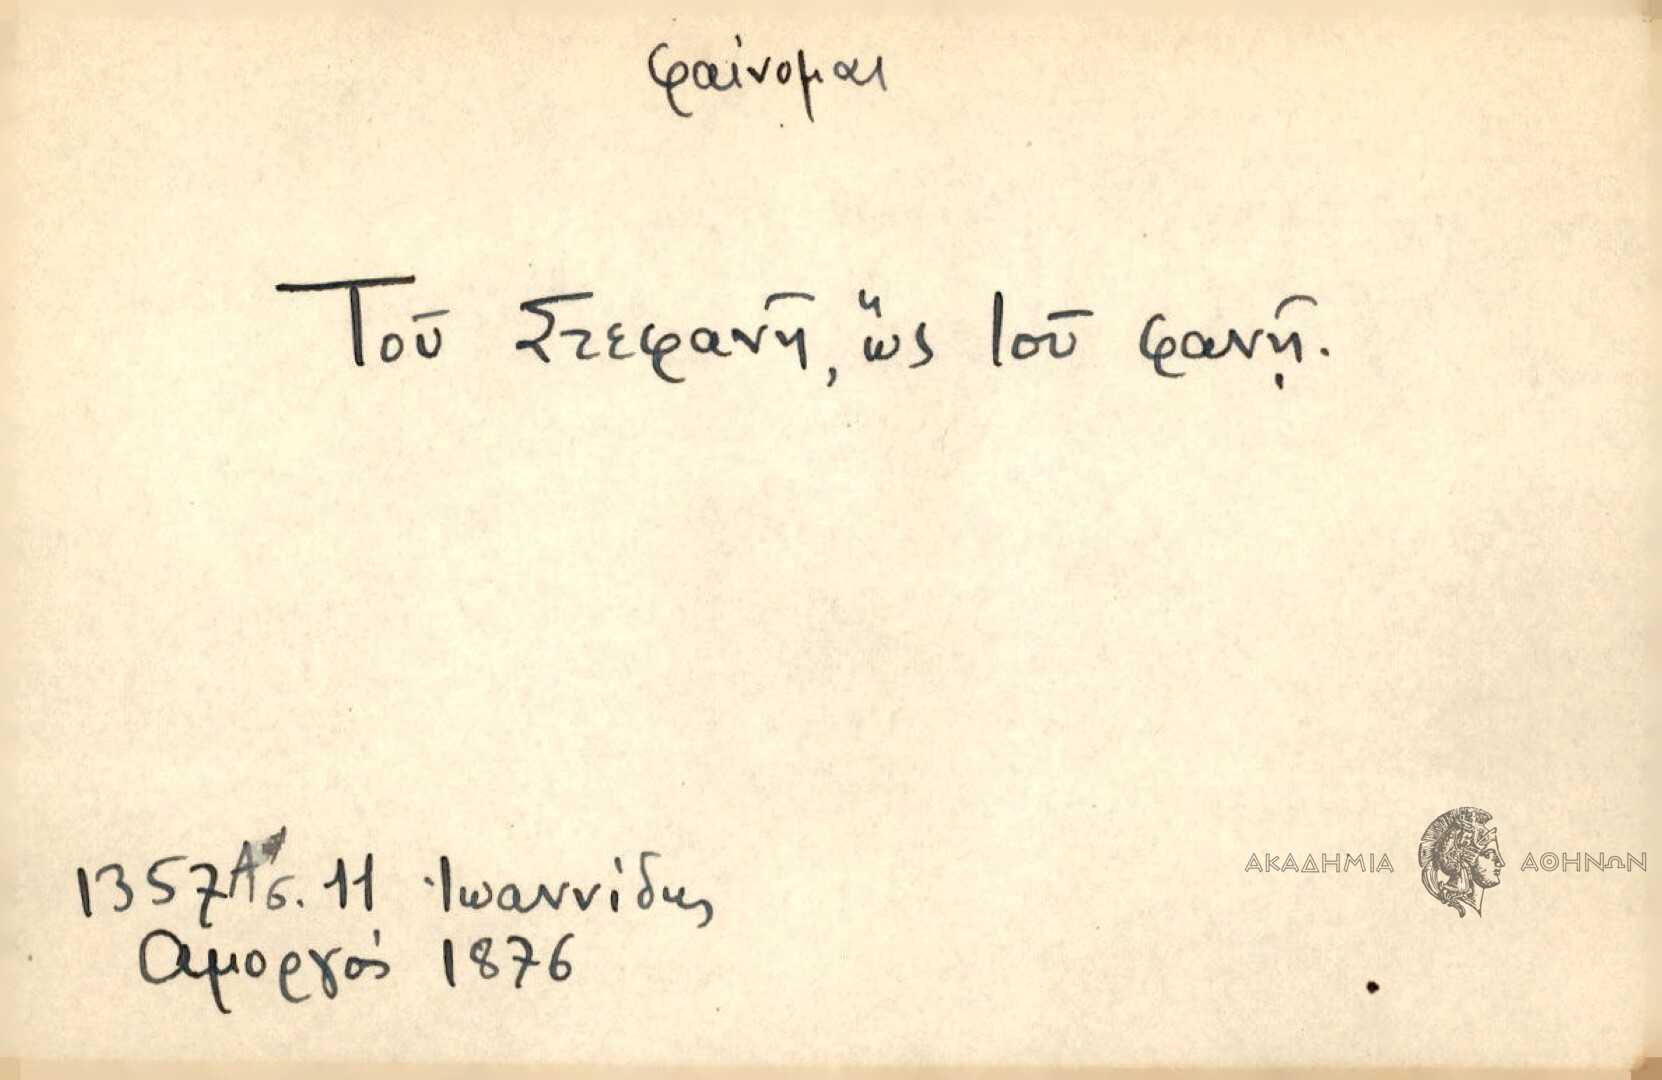 φαίνομαι
Τοῦ Στεφανῆ, ὥς ἰοῦ φανῇ.
1357 Α' σ. 11 Ἰωαννίδης
Αμοργός 1876
ΑΚΑΔΗΜΙΑ ΑΘΗΝΩΝ